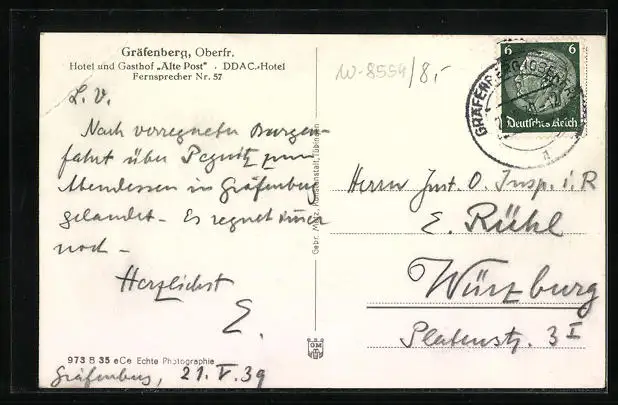 Gräfenberg, Oberfr.
Hotel und Gasthof „Alte Post" · DDAC.-Hotel
Fernsprecher Nr. 57
L. V.
Nach verregneter Burgen-
fahrt über Pegnitz zum
Abendessen in Gräfenberg
gelandet - Es regnet immer
noch -
Herzlichst
E.
973 B 35 eCe Echte Photographie
Gräfenberg, 21. V. 39
Gebr. Metz, Kunstanstalt, Tübingen
GMT
W-8554/8,-
6 6
Deutsches Reich
GRÄFENBERG (OBERFR)
a
Herrn Just. O. Insp. i. R
E. Rühl
Würzburg
Platenstr. 3 I